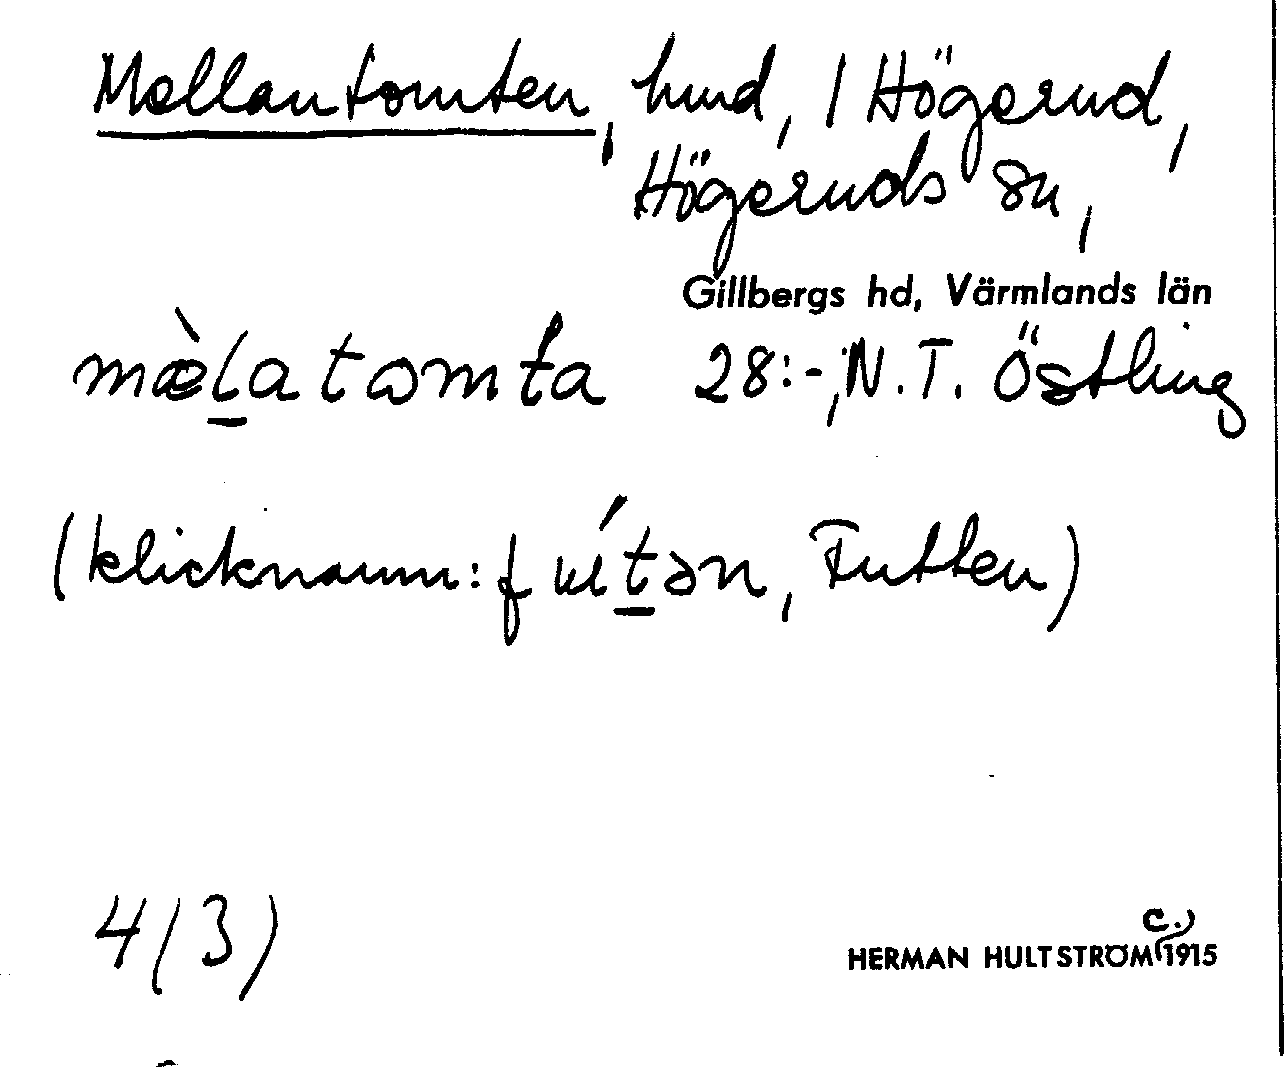 Mellantomten, hmd, 1 Högerud,
Högeruds sn,
Gillbergs hd, Värmlands län
mæ̀l̲atωmta 28:-, N. T. Östling
(klicknamn: fút̲ən, Futten)
4(3)
HERMAN HULTSTRÖM (c.) 1915